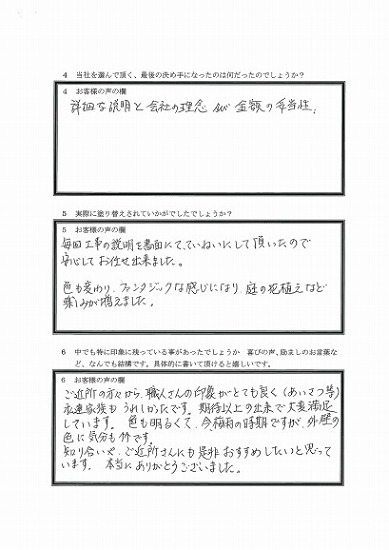 4 当社を選んで頂く、最後の決め手になったのは何だったのでしょうか?
4 お客様の声の欄
詳細な説明と会社の理念 及び 金額の妥当性。
5 実際に塗り替えされていかがでしたでしょうか?
5 お客様の声の欄
毎回工事の説明を書面にて、ていねいにして頂いたので
安心してお任せ出来ました。
色も変わり、ファンタジックな感じになり、庭の花植えなど
楽しみが増えました。
6 中でも特に印象に残っている事があったでしょうか 喜びの声、励ましのお言葉な
ど、なんでも結構です。具体的に書いて頂けると嬉しいです。
6 お客様の声の欄
ご近所の方々から、職人さんの印象がとても良く(あいさつ等)
家族もうれしかったです。期待以上の出来で大変満足
しています。 色も明るくて、今梅雨の時期ですが、外壁の
色に気分も です。
知り合いや、ご近所さんにも是非おすすめしたいと思って
います。 本当にありがとうございました。